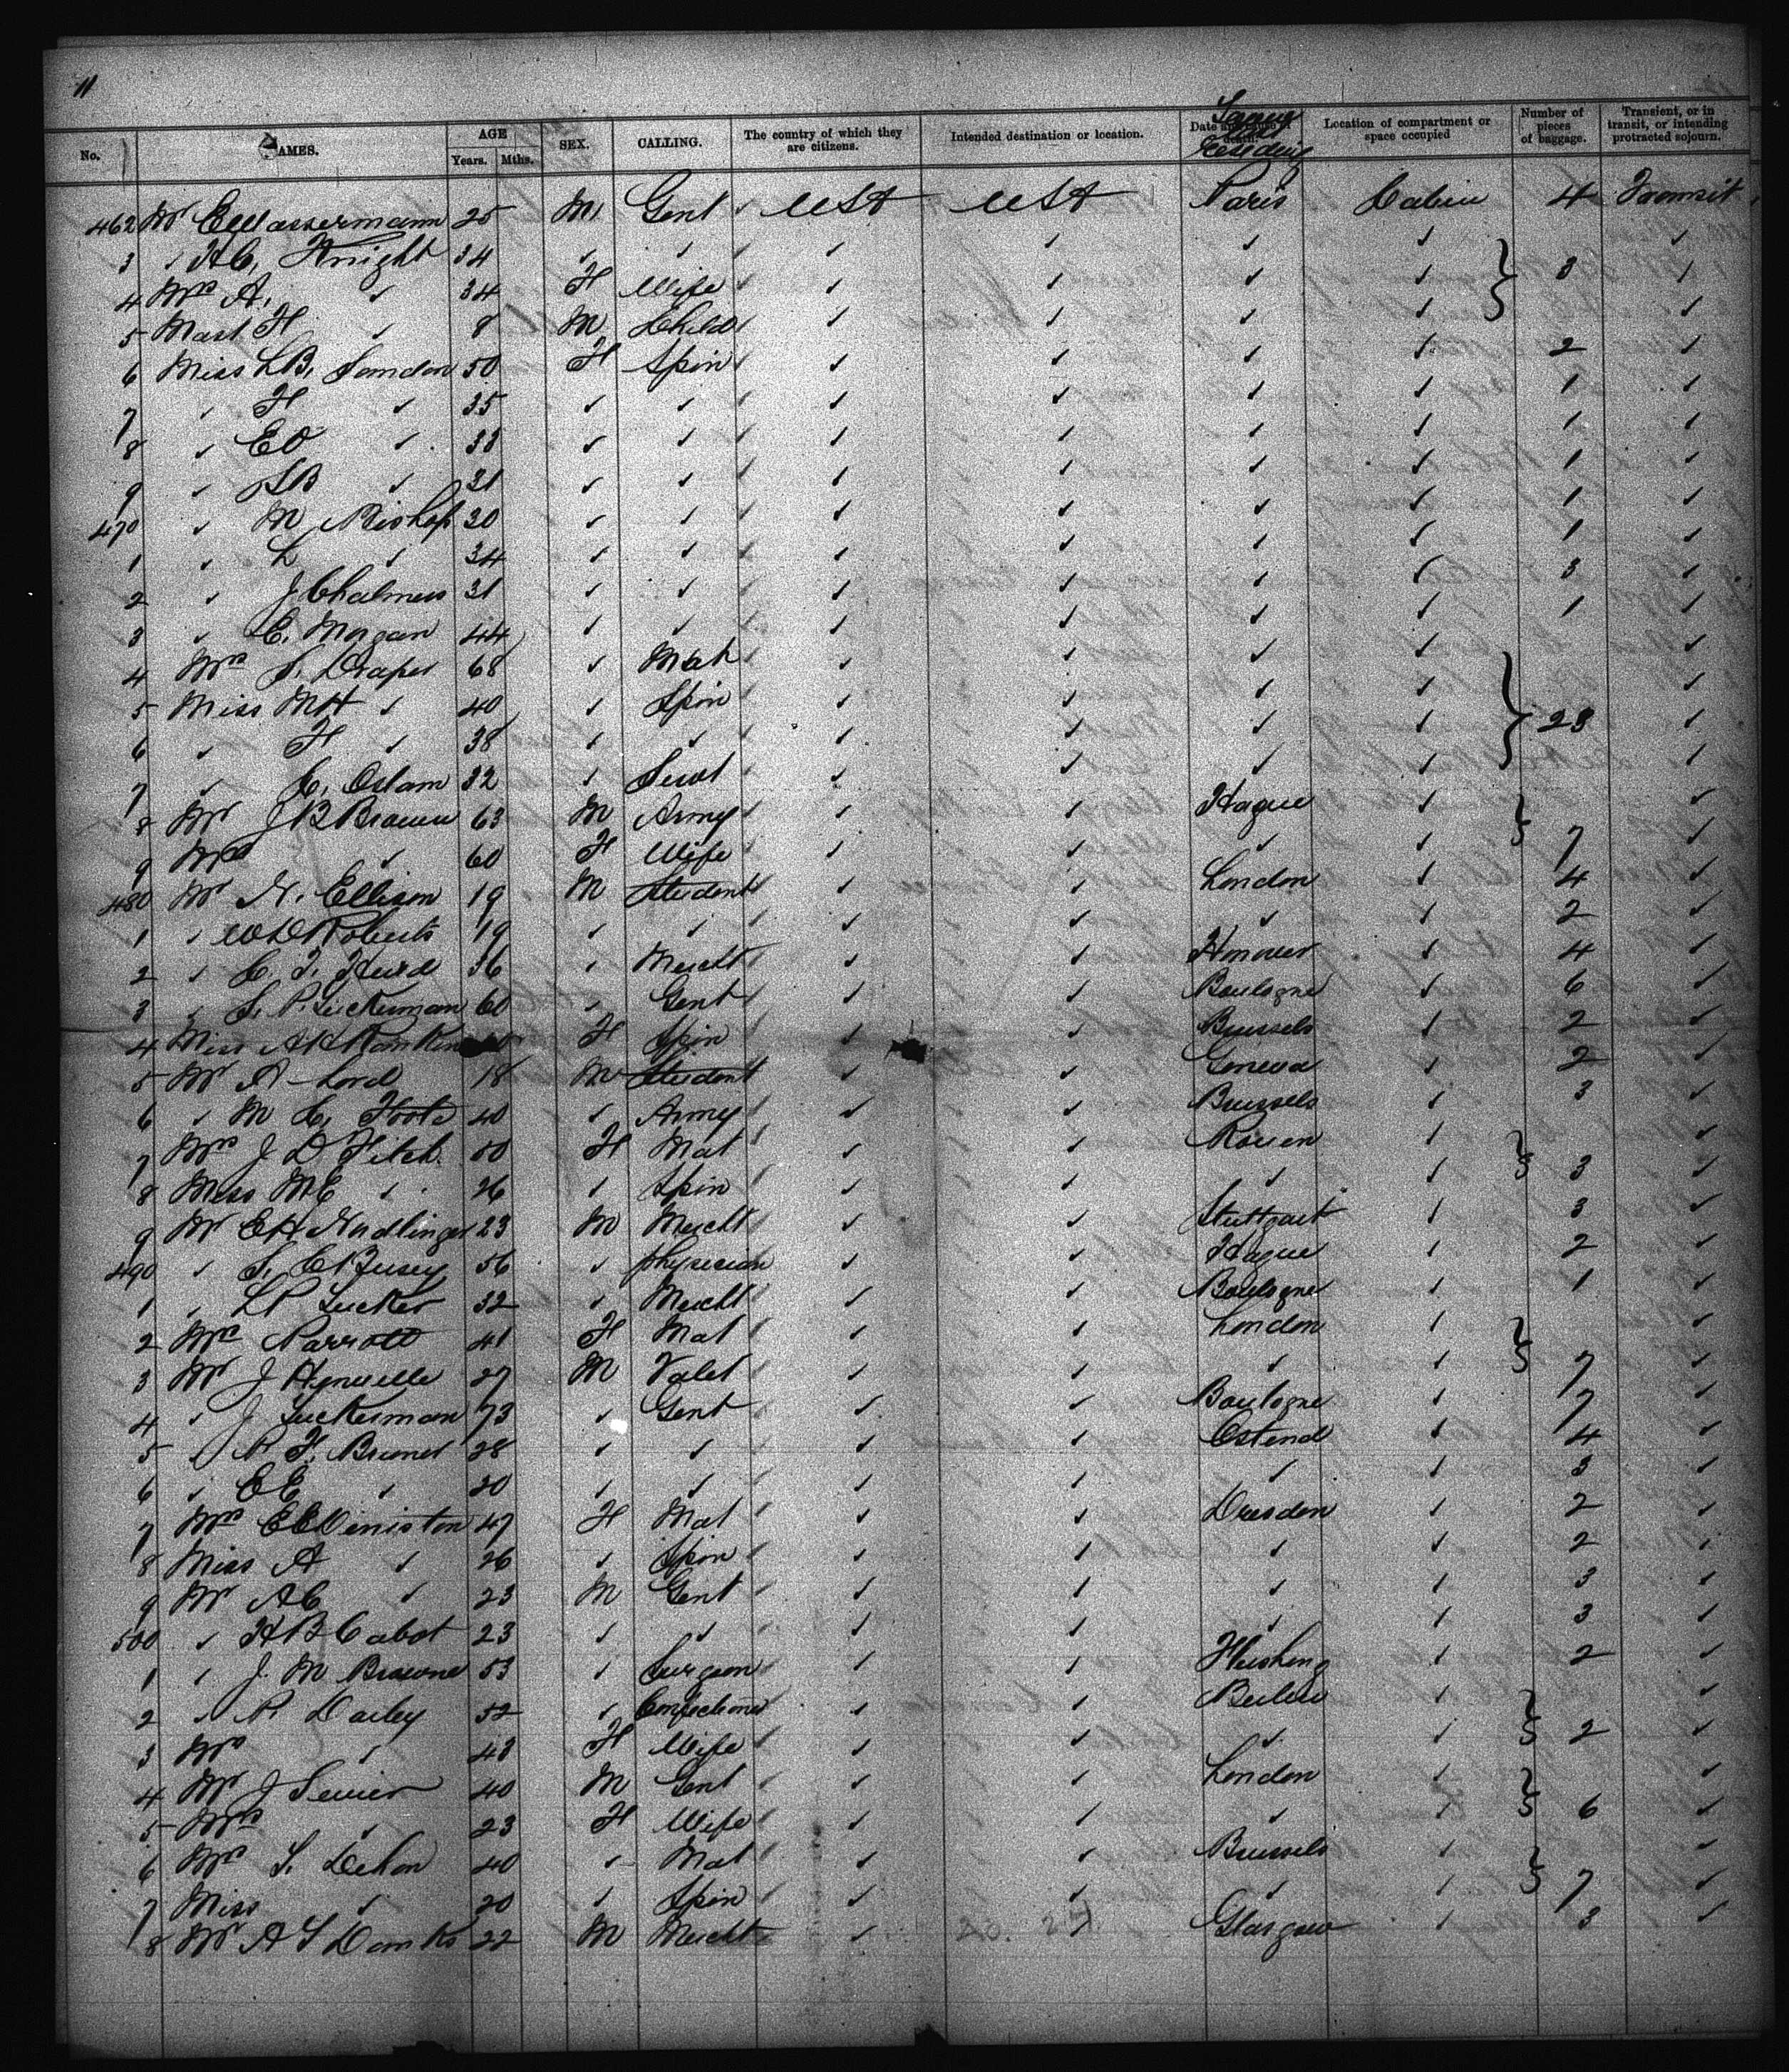 11
No. NAMES. AGE Years. Mths. SEX. CALLING. The country of which they are citizens. Intended destination or location. Date and cause of death. Residing Location of compartment or space occupied Number of pieces of baggage. Transient, or in transit, or intending protracted sojourn.
462 Mr E Wassermann 25 M Gent USA USA Paris Cabin 4 Transit
3 ✓ H C, Knight 34 ✓ ✓ ✓ ✓ ✓ ✓ ✓
4 Mrs A, ✓ 34 F Wife ✓ ✓ ✓ ✓ 3 ✓
5 Mast H ✓ 8 M Child ✓ ✓ ✓ ✓ ✓
6 Miss L B, 50 F Spin ✓ ✓ ✓ ✓ 2 ✓
7 ✓ H ✓ 35 ✓ ✓ ✓ ✓ ✓ ✓ 1 ✓
8 ✓ E O ✓ 33 ✓ ✓ ✓ ✓ ✓ ✓ 1 ✓
9 ✓ S B ✓ 31 ✓ ✓ ✓ ✓ ✓ ✓ 1 ✓
470 ✓ M Bishop 30 ✓ ✓ ✓ ✓ ✓ ✓ 1 ✓
1 ✓ L ✓ 34 ✓ ✓ ✓ ✓ ✓ ✓ 1 ✓
2 ✓ J Chalmers 31 ✓ ✓ ✓ ✓ ✓ ✓ 3 ✓
3 ✓ C, Morgan 44 ✓ ✓ ✓ ✓ ✓ ✓ 1 ✓
4 Mrs S. Draper 68 ✓ Mat ✓ ✓ ✓ ✓ ✓
5 Miss M H ✓ 40 ✓ Spin ✓ ✓ ✓ ✓ ✓
6 ✓ F ✓ 38 ✓ ✓ ✓ ✓ ✓ ✓ 23 ✓
7 ✓ C, Oslam 32 ✓ Servt ✓ ✓ ✓ ✓ ✓
8 Mr J B Brown 63 M Army ✓ ✓ Hague ✓ ✓
9 Mrs ✓ 60 F Wife ✓ ✓ ✓ ✓ 7 ✓
480 Mr N. Ellison 19 M Student ✓ ✓ London ✓ 4 ✓
1 ✓ W D Roberts 19 ✓ ✓ ✓ ✓ ✓ ✓ 2 ✓
2 ✓ C. F. Hurd 36 ✓ Mercht ✓ ✓ Honover ✓ 4 ✓
3 ✓ S. P. Tuckerman 60 ✓ Gent ✓ ✓ Boulogne ✓ 6 ✓
4 Miss A H Rankin F Spin ✓ ✓ Brussels ✓ 2 ✓
5 Mr A Lord 18 M Student ✓ ✓ Geneva ✓ 2 ✓
6 ✓ M C, Foote 40 ✓ Army ✓ ✓ Brussels ✓ 3 ✓
7 Mrs J D Fitch 50 F Mat ✓ ✓ Rouen ✓ ✓
8 Miss M E ✓ 26 ✓ Spin ✓ ✓ ✓ ✓ 3 ✓
9 Mr E H Nordlinger 23 M Mercht ✓ ✓ Stuttgart ✓ 3 ✓
490 ✓ S. C Busey 56 ✓ physician ✓ ✓ Hague ✓ 2 ✓
1 ✓ L P Tucker 32 ✓ Mercht ✓ ✓ Boulogne ✓ 1 ✓
2 Mrs Parrott 41 F Mat ✓ ✓ London ✓ ✓
3 Mr J 27 M Valet ✓ ✓ ✓ ✓ 7 ✓
4 ✓ J Tuckerman 73 ✓ Gent ✓ ✓ Boulogne ✓ 7 ✓
5 ✓ P. F. Bruner 28 ✓ ✓ ✓ ✓ Ostend ✓ 4 ✓
6 ✓ E E ✓ 20 ✓ ✓ ✓ ✓ ✓ ✓ 3 ✓
7 Mrs E E Deniston 47 F Mat ✓ ✓ Dresden ✓ 2 ✓
8 Miss A ✓ 26 ✓ Spin ✓ ✓ ✓ ✓ 2 ✓
9 Mr A C ✓ 23 M Gent ✓ ✓ ✓ ✓ 3 ✓
500 ✓ H B Cabot 23 ✓ ✓ ✓ ✓ ✓ ✓ 3 ✓
1 ✓ J. M Browne 53 ✓ Surgeon ✓ ✓ Flushing ✓ 2 ✓
2 ✓ P. Dailey 52 ✓ Confectioner ✓ ✓ Berlin ✓ ✓
3 Mrs ✓ 43 F Wife ✓ ✓ ✓ ✓ 2 ✓
4 Mr J Sevier 40 M Gent ✓ ✓ London ✓ ✓
5 Mrs ✓ 23 F Wife ✓ ✓ ✓ ✓ 6 ✓
6 Mrs S. Dehon 40 ✓ Mat ✓ ✓ Brussels ✓ ✓
7 Miss ✓ 20 ✓ Spin ✓ ✓ ✓ ✓ 7 ✓
8 Mr A S Danks 22 M Mercht ✓ Glasgow ✓ 3 ✓